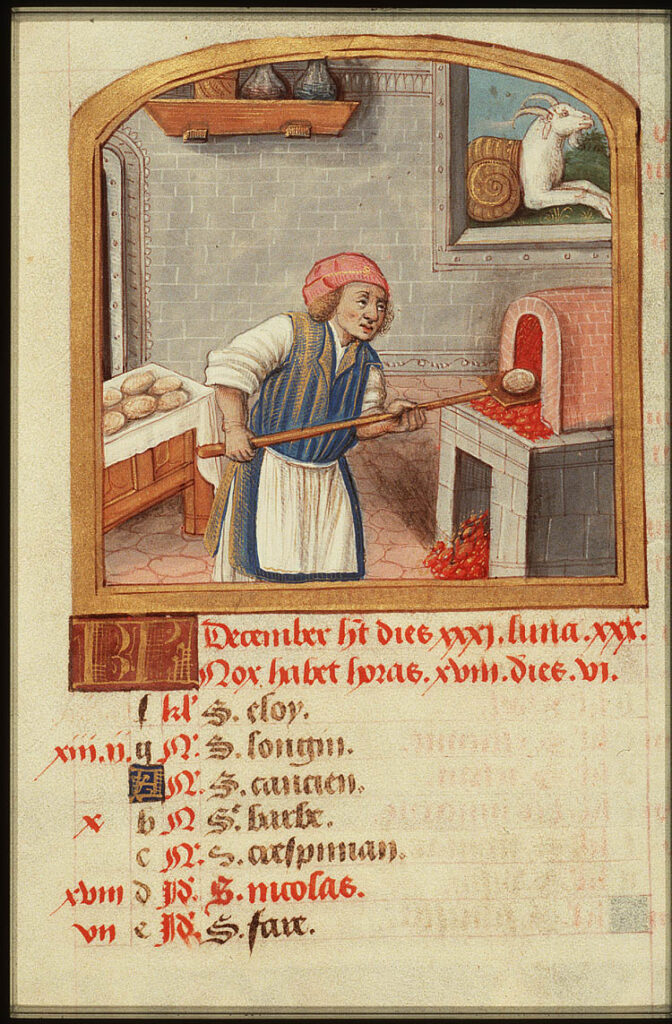 KL December ht dies xxxj. luna. xxx.
Nox habet horas. xviii. dies. vi.
f kl' S. eloy.
xiii. ii. g N. S. longin.
A N. S. cancien.
x b N Ste barbe.
c N. S. crespinian.
xviii d Id'. S. nicolas.
vii e Id'. S. fare.